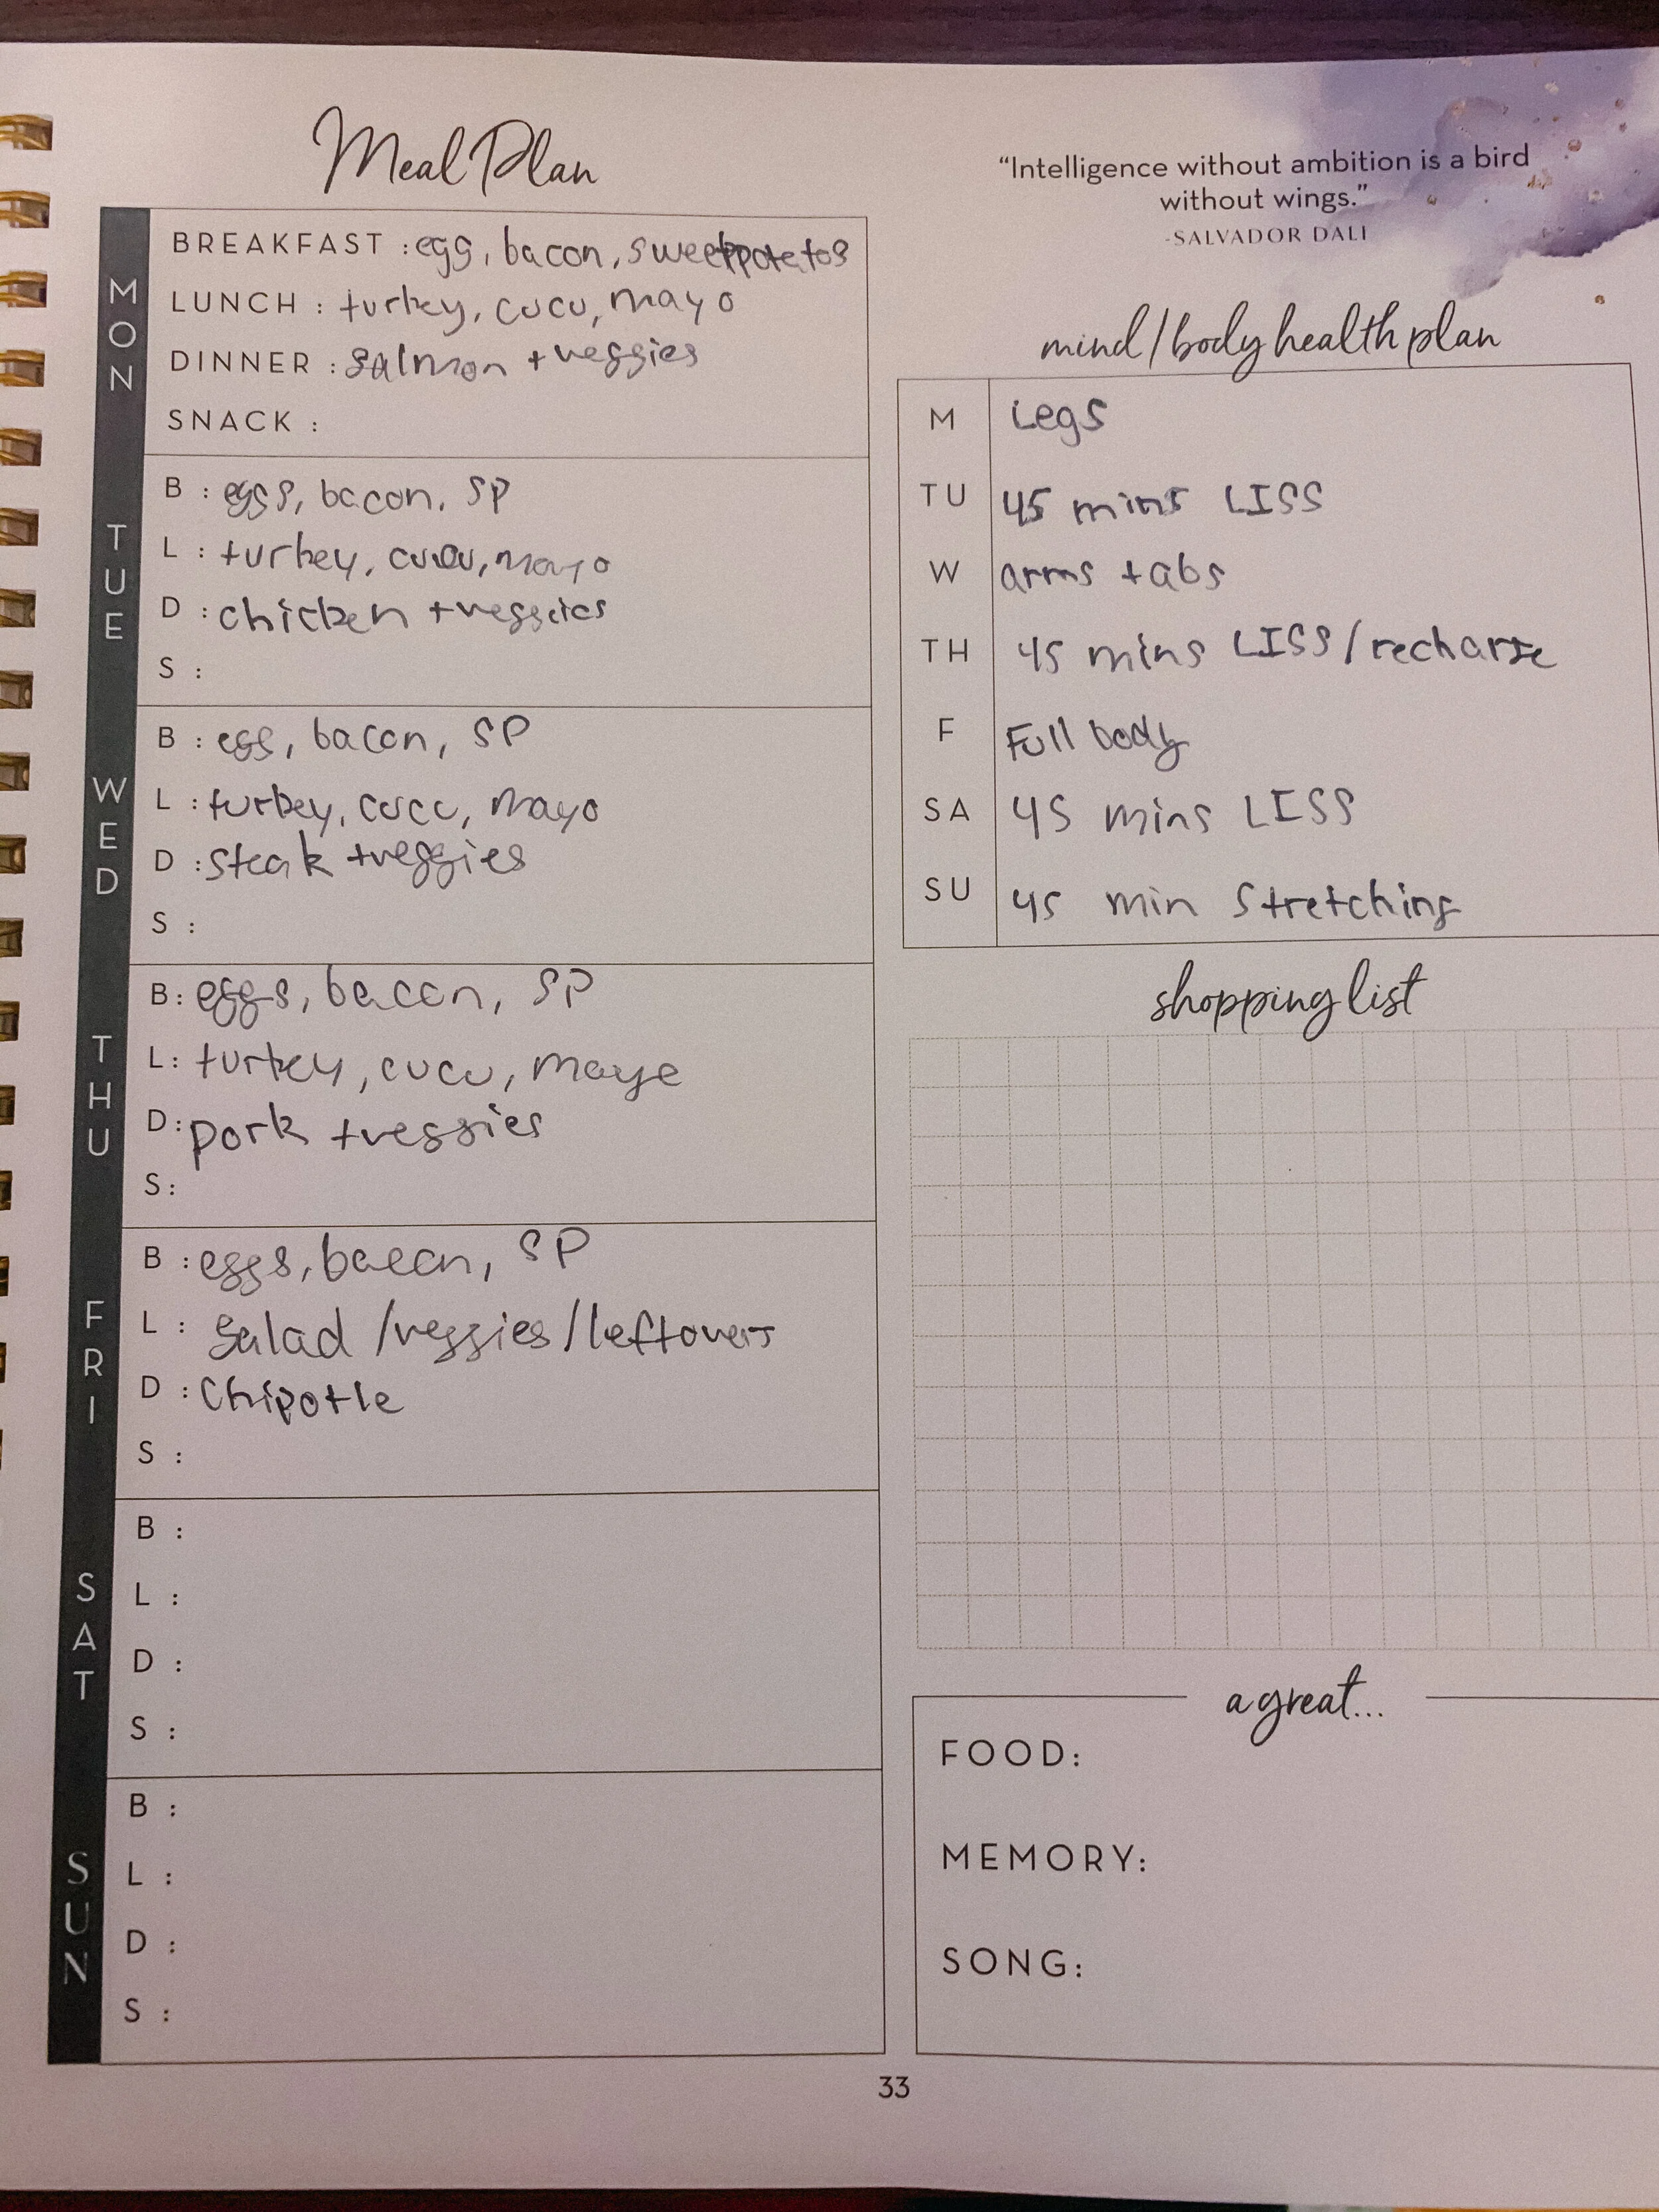 Meal Plan
MON
BREAKFAST : egg, bacon, sweetpotatos
LUNCH : turkey, cucu, mayo
DINNER : salmon + veggies
SNACK :
TUE
B : eggs, bacon, SP
L : turkey, cucu, mayo
D : chicken + veggies
S :
WED
B : egg, bacon, SP
L : turkey, cucu, mayo
D : steak + veggies
S :
THU
B : eggs, bacon, SP
L : turkey, cucu, mayo
D : pork + veggies
S :
FRI
B : eggs, bacon, SP
L : Salad / veggies / leftovers
D : Chipotle
S :
SAT
B :
L :
D :
S :
SUN
B :
L :
D :
S :
"Intelligence without ambition is a bird
without wings."
-SALVADOR DALI
mind/body health plan
M Legs
TU 45 mins LISS
W arms + abs
TH 45 mins LISS / recharge
F Full body
SA 45 mins LISS
SU 45 min Stretching
shopping list
a great...
FOOD:
MEMORY:
SONG:
33